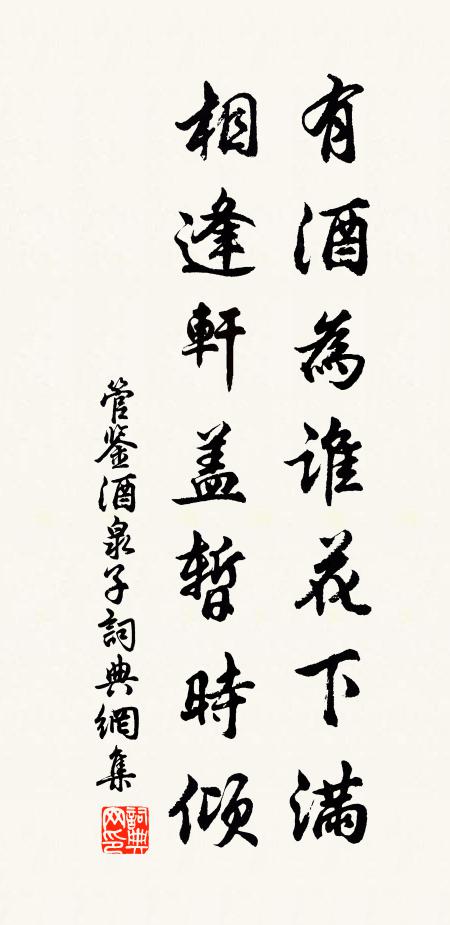 有酒為誰花下滿
相逢軒盖暫時傾
管鉴酒泉子詞典網集
詞典網印